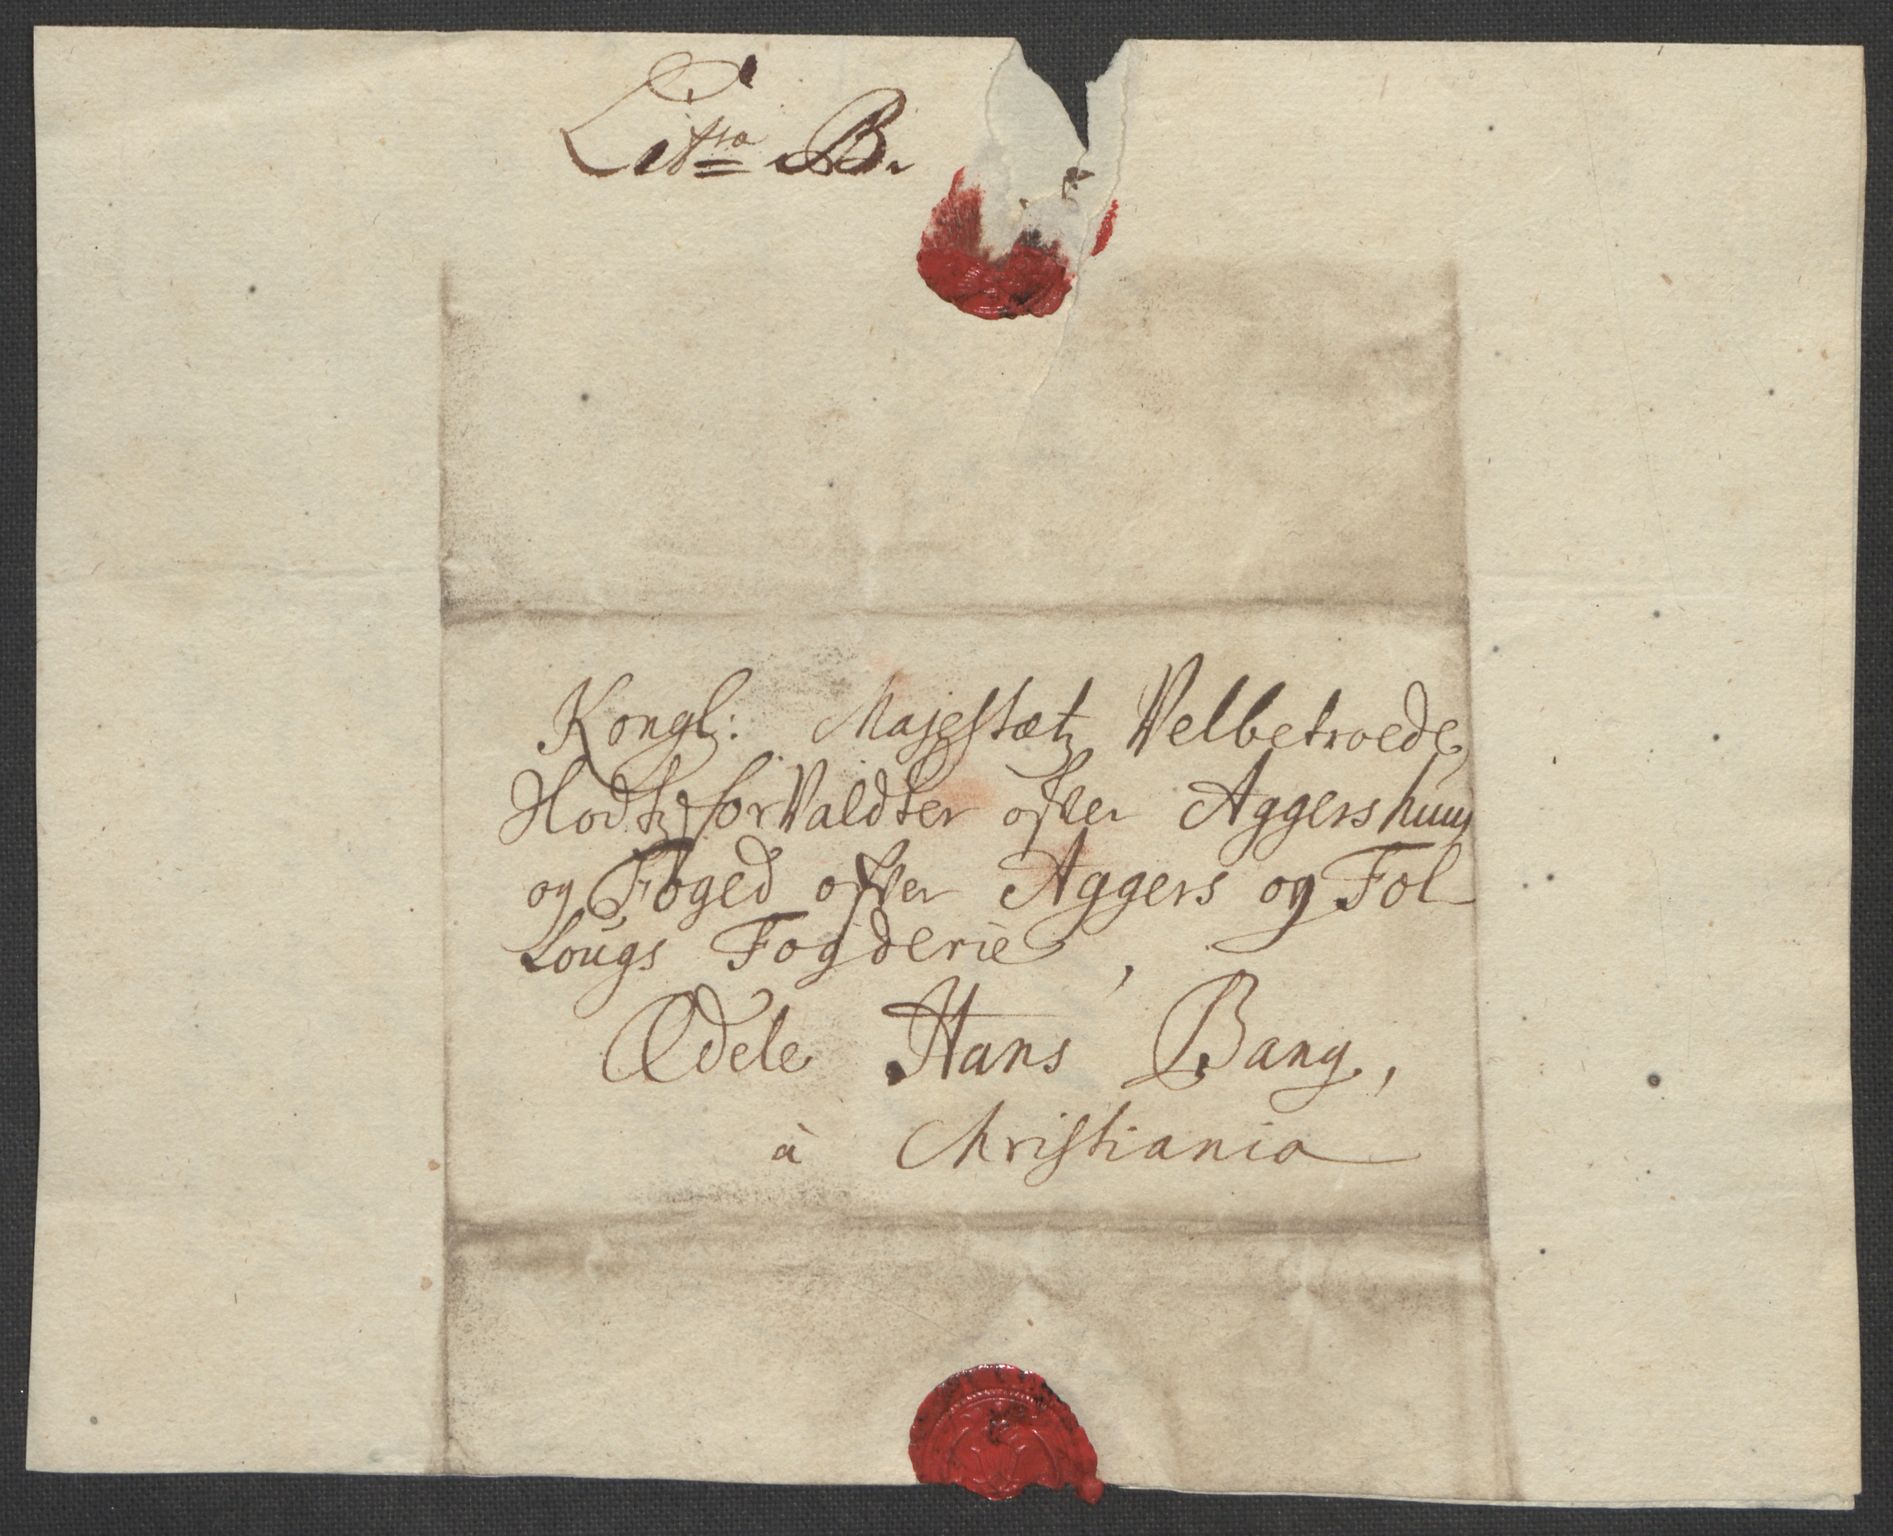 Littra B.
Kongl: Majestætz Velbetroede
forValdter ofver Aggershuus
og Foged ofver Aggers og Fol
lougs Fogderie,
Ædele Hans Bang,
à Christiania